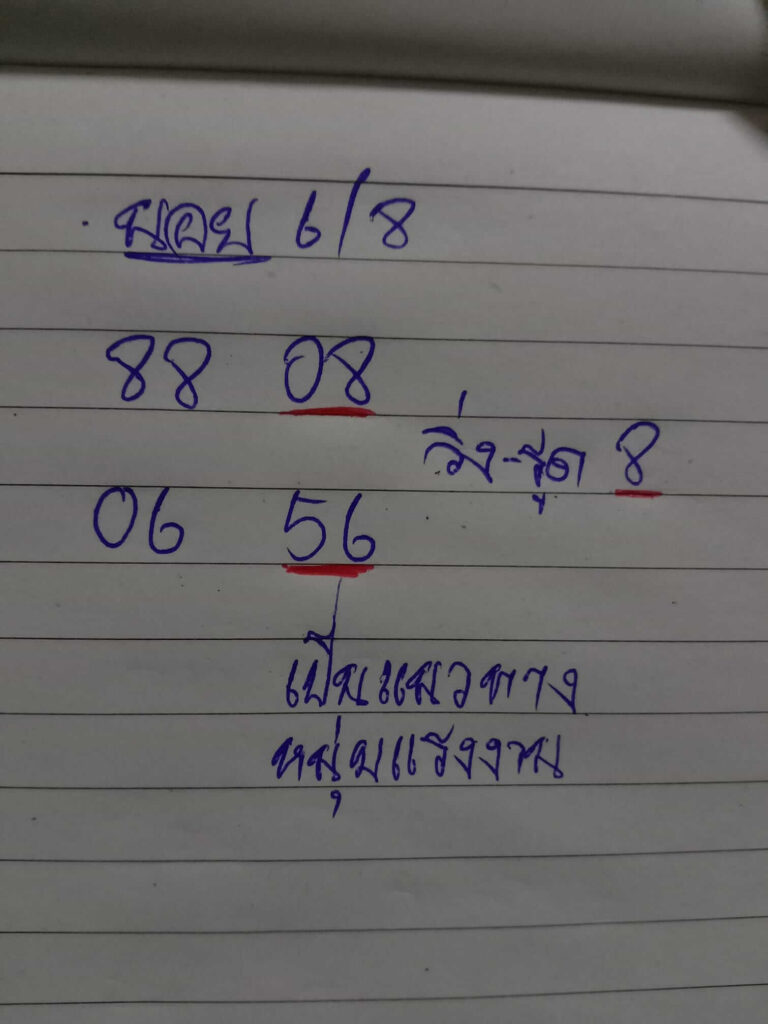 นอย 6/8
88 08
วิ่ง-รูด 8
06 56
เป็นแนวทาง
หนุ่มแรงงาน